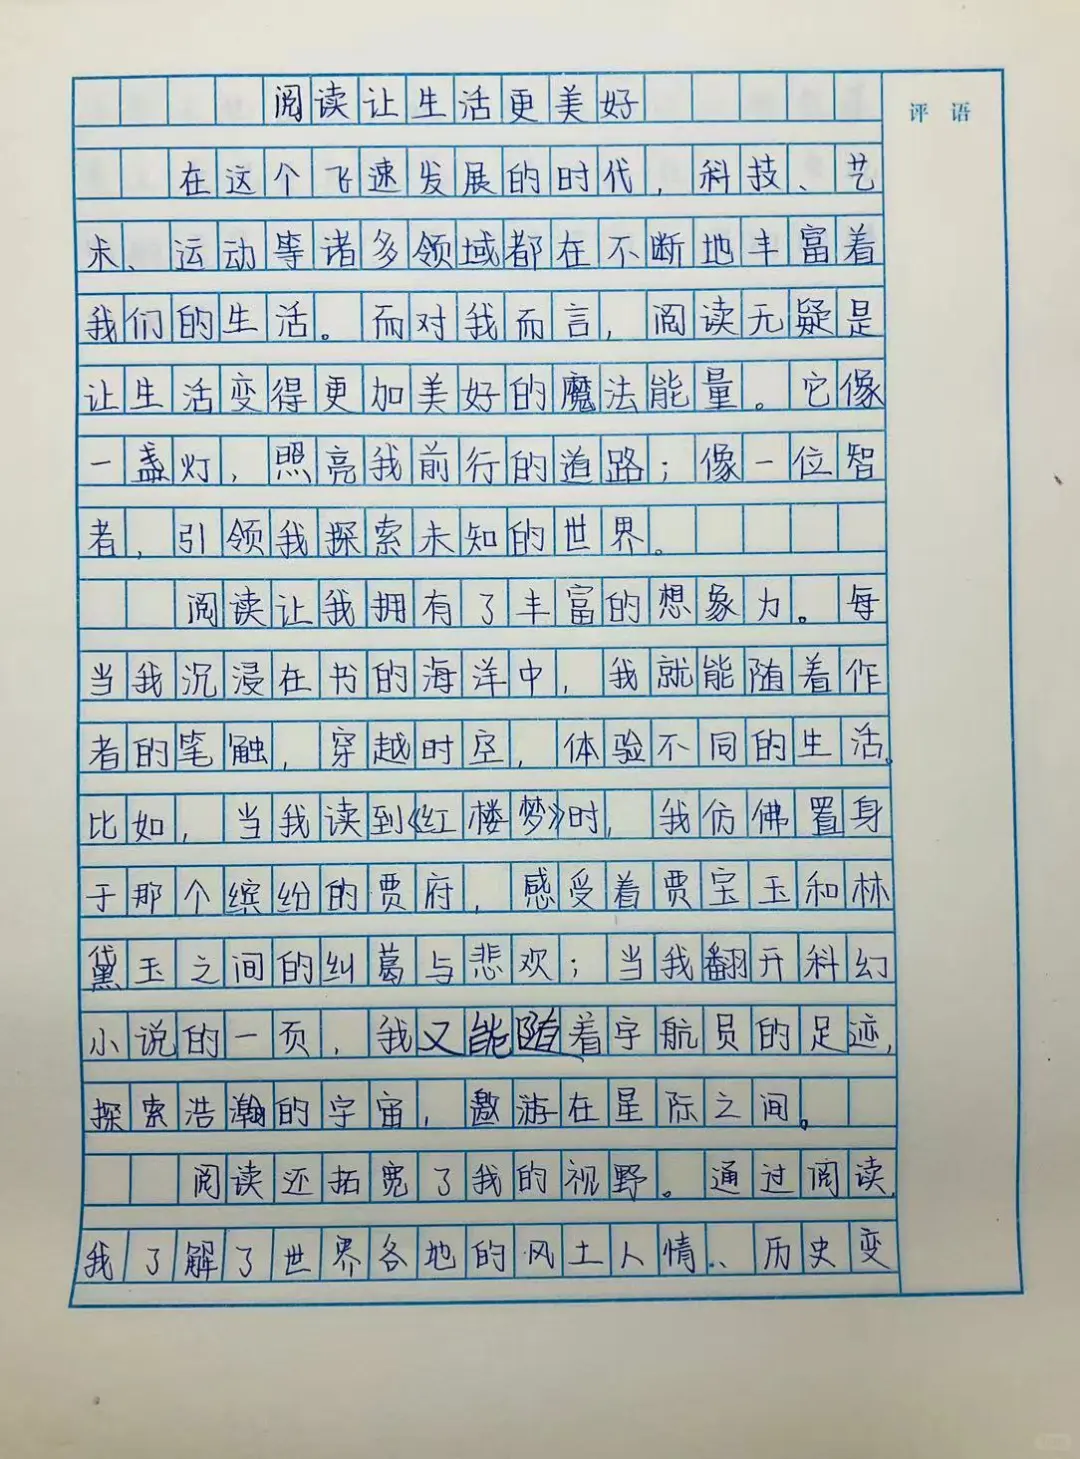 阅读让生活更美好
评语
在这个飞速发展的时代，科技、艺
术、运动等诸多领域都在不断地丰富着
我们的生活。而对我而言，阅读无疑是
让生活变得更加美好的魔法能量。它像
一盏灯，照亮我前行的道路；像一位智
者，引领我探索未知的世界。
阅读让我拥有了丰富的想象力。每
当我沉浸在书的海洋中，我就能随着作
者的笔触，穿越时空，体验不同的生活。
比如，当我读到《红楼梦》时，我仿佛置身
于那个缤纷的贾府，感受着贾宝玉和林
黛玉之间的纠葛与悲欢；当我翻开科幻
小说的一页，我又能随着宇航员的足迹，
探索浩瀚的宇宙，遨游在星际之间。
阅读还拓宽了我的视野。通过阅读，
我了解了世界各地的风土人情、历史变